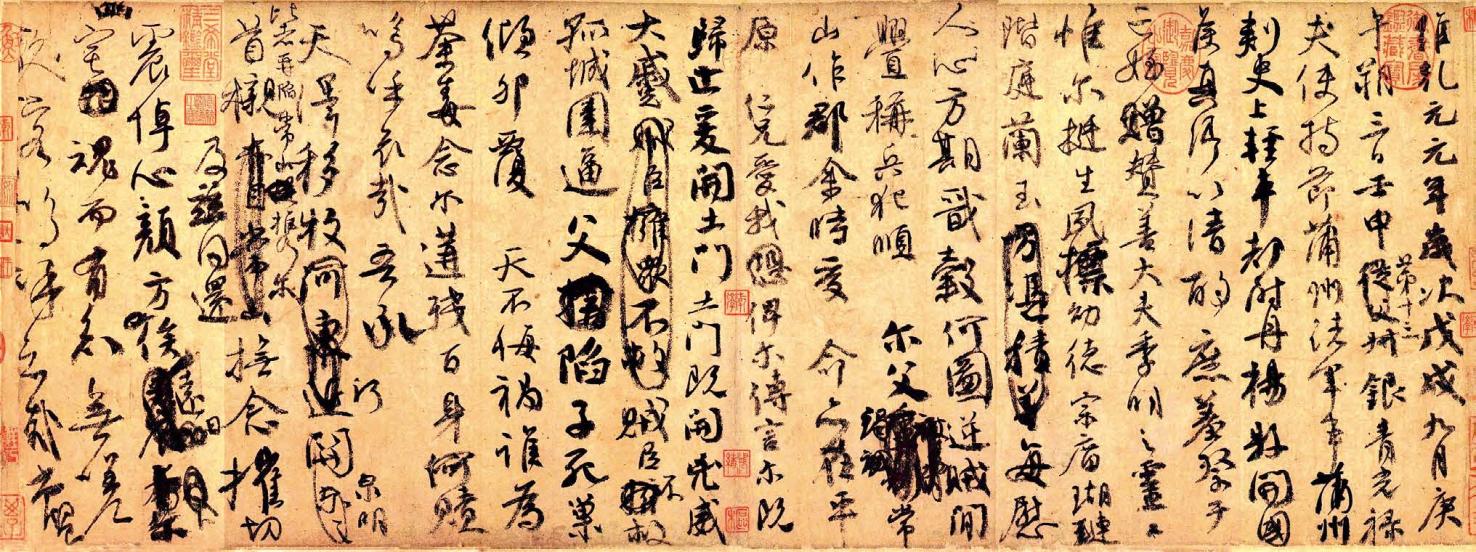 維乾元元年歲次戊戌九月庚
午朔三日壬申第十三從父叔銀青光祿
夫使持節蒲州諸軍事蒲州
刺史上輕車都尉丹楊縣開國
侯真卿以清酌庶羞祭于
亡姪贈贊善大夫季明之靈曰
惟爾挺生夙標幼德宗廟瑚璉
階庭蘭玉方憑積善每慰
人心方期戩穀何圖逆賊閒
釁稱兵犯順 爾父竭誠常
山作郡余時受命亦在平
原 仁兄愛我俾爾傳言爾既
歸止爰開土門土門既開凶威
大蹙賊臣擁眾不救賊臣不救
孤城圍逼父陷子死巢
傾卵覆 天不悔禍誰為
荼毒念爾遘殘百身何贖
嗚呼哀哉吾承
天澤移牧河東近河關泉明
比者再陷常山攜爾
首櫬及茲同還撫念摧切
震悼心顏方俟遠日
宅魂而有知無嗟
久客嗚呼哀哉尚饗